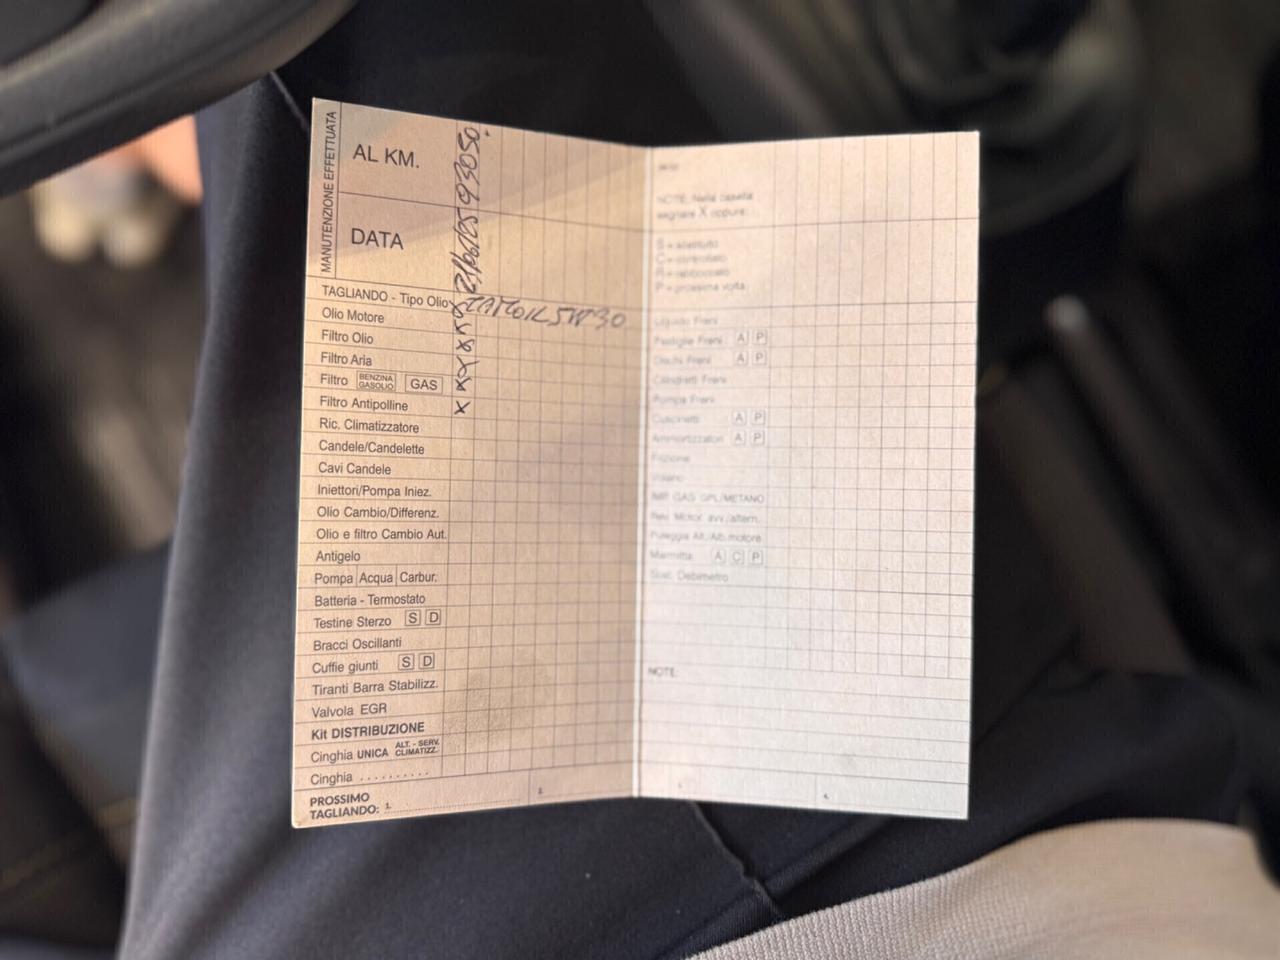 MANUTENZIONE EFFETTUATA
AL KM. 93050
DATA
TAGLIANDO - Tipo Olio 5W30
Olio Motore X
Filtro Olio X
Filtro Aria X
Filtro BENZINA GASOLIO GAS X
Filtro Antipolline X
Ric. Climatizzatore
Candele/Candelette
Cavi Candele
Iniettori/Pompa Iniez.
Olio Cambio/Differenz.
Olio e filtro Cambio Aut.
Antigelo
Pompa Acqua Carbur.
Batteria - Termostato
Testine Sterzo S D
Bracci Oscillanti
Cuffie giunti S D
Tiranti Barra Stabilizz.
Valvola EGR
Kit DISTRIBUZIONE
Cinghia UNICA ALT. - SERV. CLIMATIZZ.
Cinghia ..........
PROSSIMO
TAGLIANDO: 1. 2.
NOTE: Nella casella
segnare X oppure:
S = sostituito
C = controllato
R = rabboccato
P = prossima volta
Liquido Freni
Pastiglie Freni A P
Dischi Freni A P
Cilindretti Freni
Pompa Freni
Cuscinetti A P
Ammortizzatori A P
Frizione
Volano
IMP. GAS GPL/METANO
Rev. Motor. avv./altern.
Puleggia Alt./Alb. motore
Marmitta A C P
Sost. Debimetro
NOTE:
4.